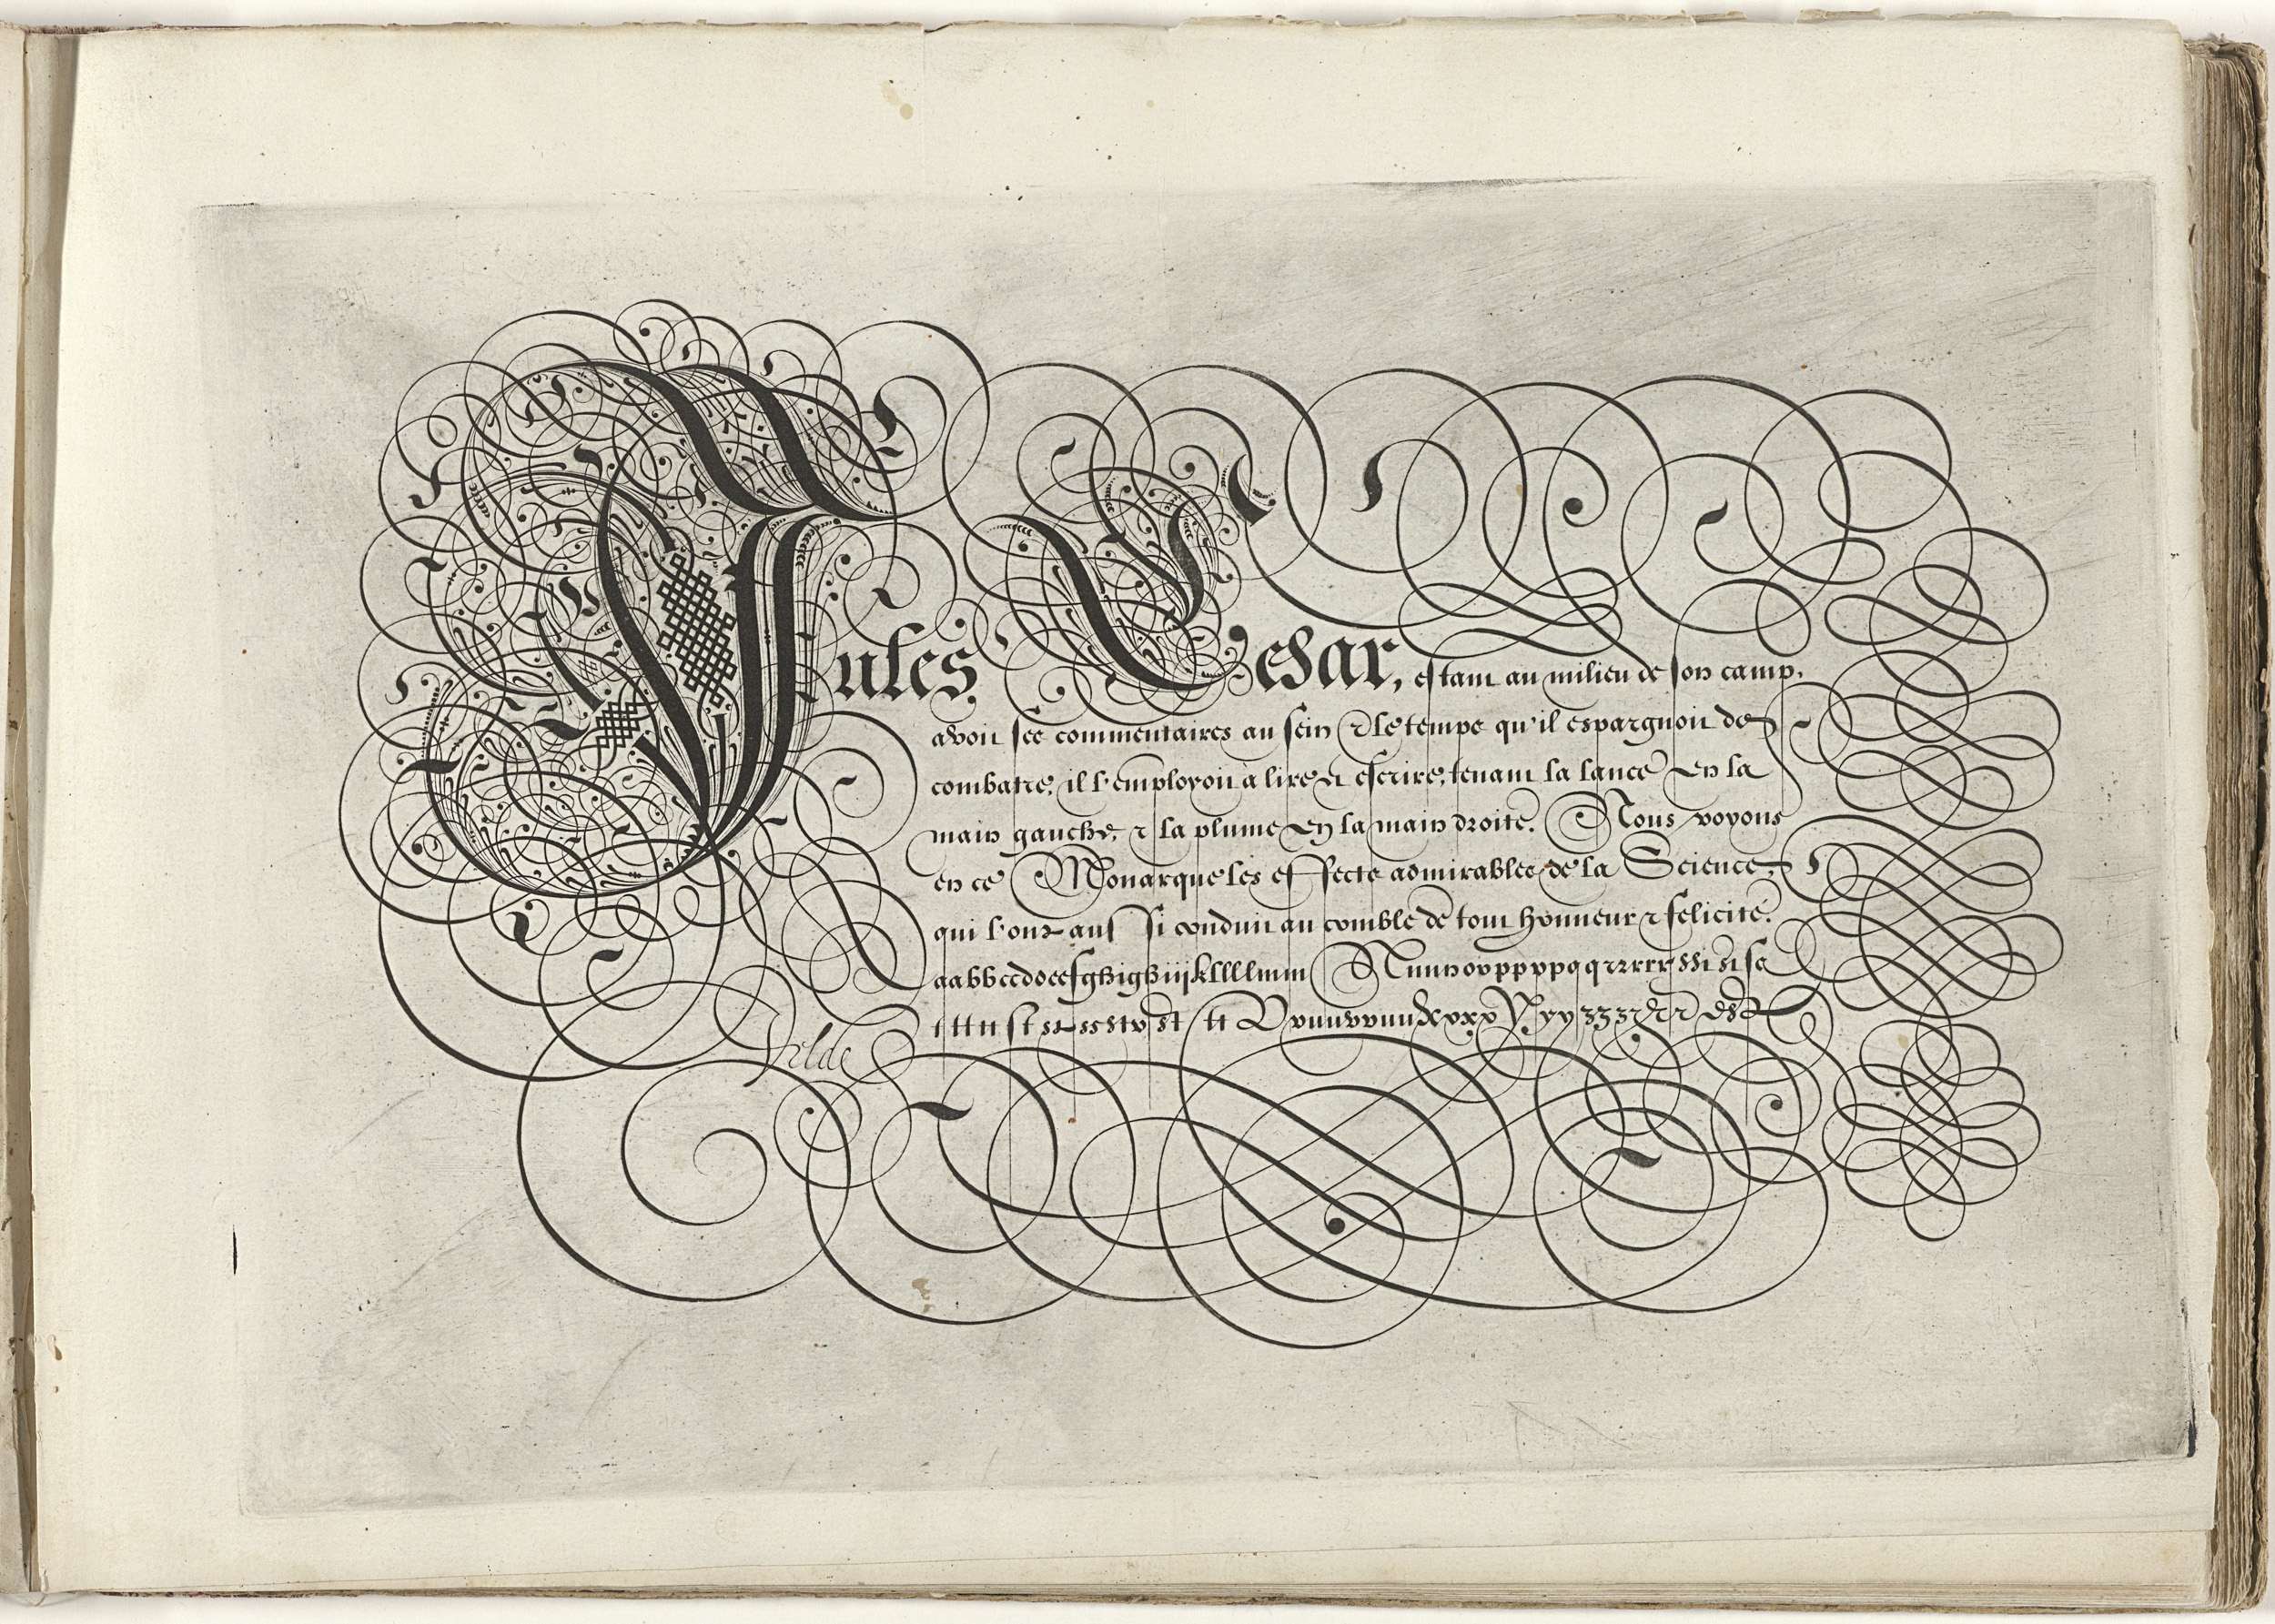 Jules Cesar, estant au milieu de son camp,
avoit ses commentaires au sein & le temps qu'il espargnoit de
combatre, il l'employoit a lire et escrire, tenant la lance en la
main gauche, & la plume en la main droite. Nous voyons
en ce Monarque les effects admirables de la Science,
qui l'ont ainsi conduit au comble de tout honneur & felicité.
aabbccddeefghighiijkllllmm Nnnnoppppp
Velde